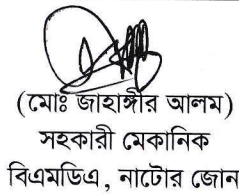 (মোঃ জাহাঙ্গীর আলম)
সহকারী মেকানিক
বিএমডিএ, নাটোর জোন